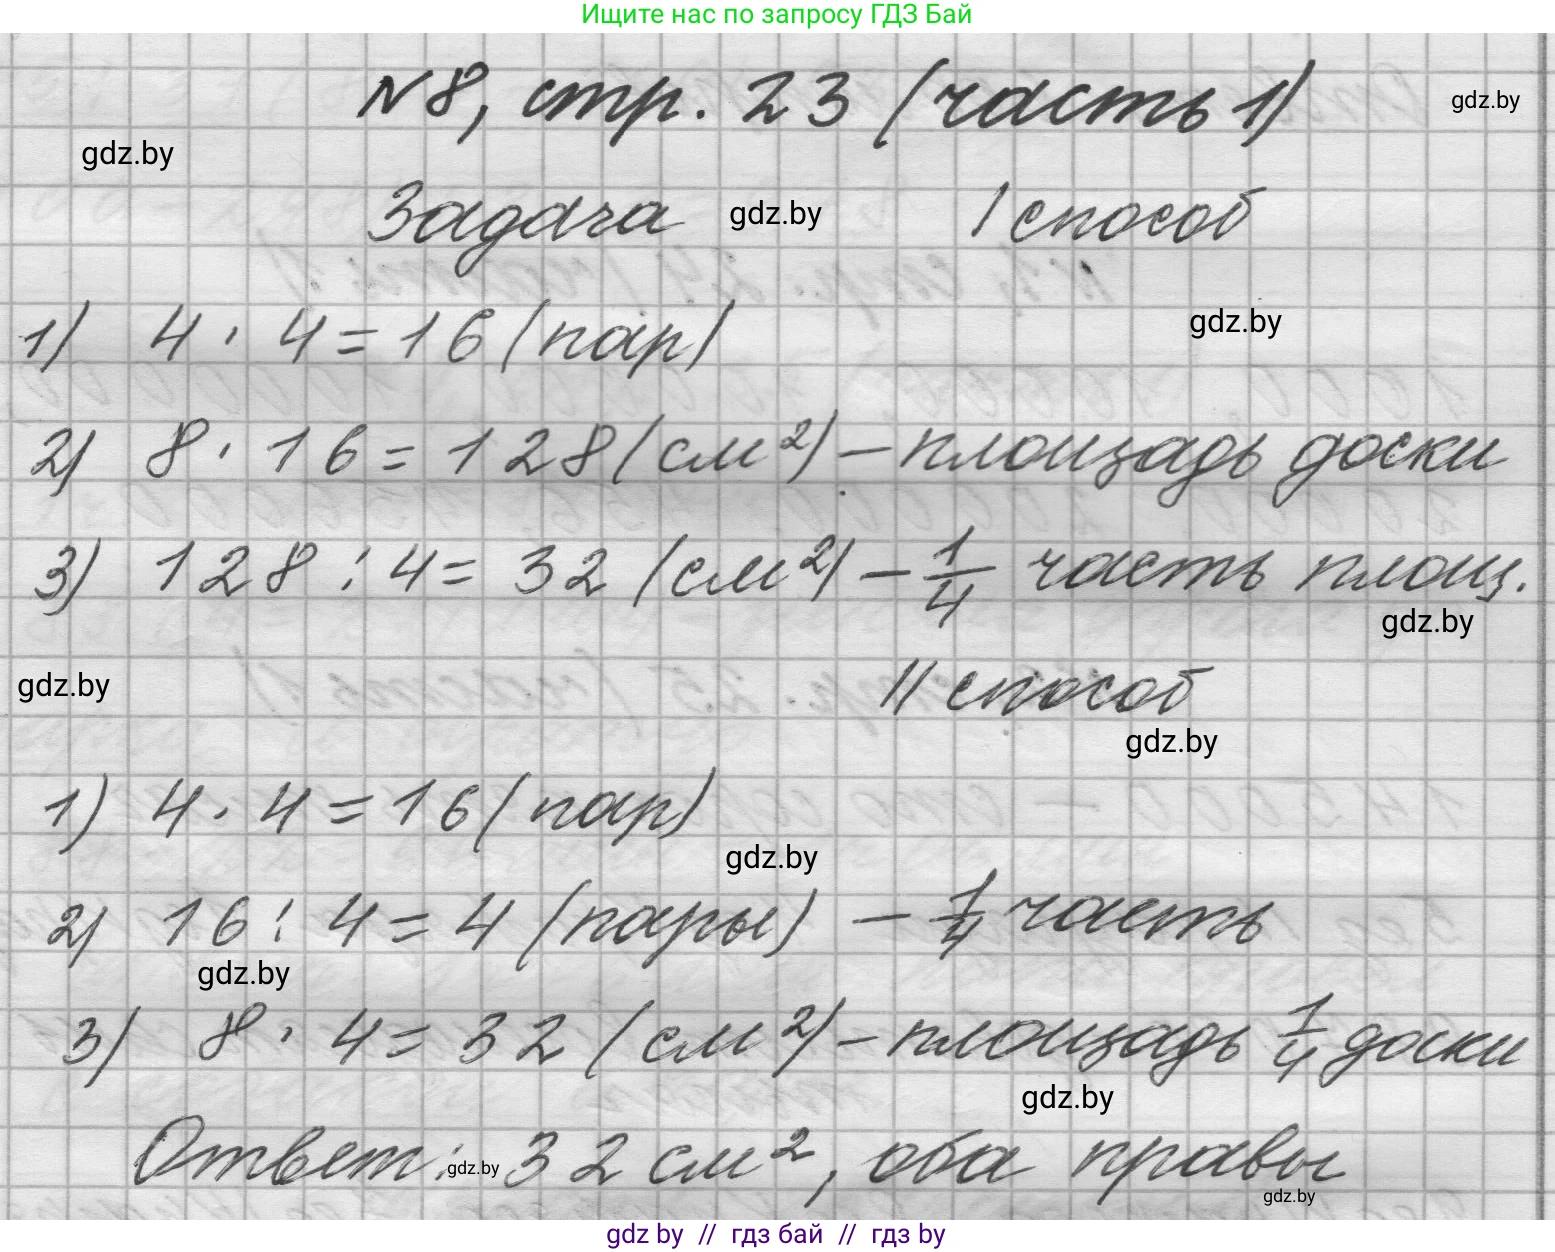 Ищите нас по запросу ГДЗ Бай
N8, стр. 23 (часть 1)
gdz.by
gdz.by
Задача gdz.by I способ
gdz.by
1) 4 · 4 = 16 (пар)
2) 8 · 16 = 128 (см²) – площадь доски
3) 128 : 4 = 32 (см²) – 1/4 часть площ.
gdz.by
gdz.by
II способ
gdz.by
1) 4 · 4 = 16 (пар)
gdz.by
2) 16 : 4 = 4 (пары) – 1/4 часть
gdz.by
3) 8 · 4 = 32 (см²) – площадь 1/4 доски
gdz.by
Ответ: gdz.by 32 см², оба правы
gdz.by
gdz by // гдз бай // gdz by